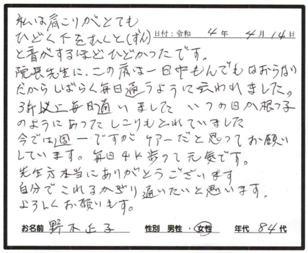 私は肩こりがとても
ひどく下をむくと(ずん)
日付:令和 4年 4月14日
と音がするほどひどかったです。
院長先生に、この肩は一日中もんでもなおらない
だからしばらく毎日通うように云われました。
3ヶ月以上毎日通いました いつの日か根っ子
のようにあったしこりもとれていました
今では1週一ですがケアーだと思ってお願い
しています。毎日4k歩って元気です。
先生方本当にありがとうございます
自分でこれるかぎり通いたいと思います。
よろしくお願いします。
お名前 野木正子 性別 男性・女性 年代 84代